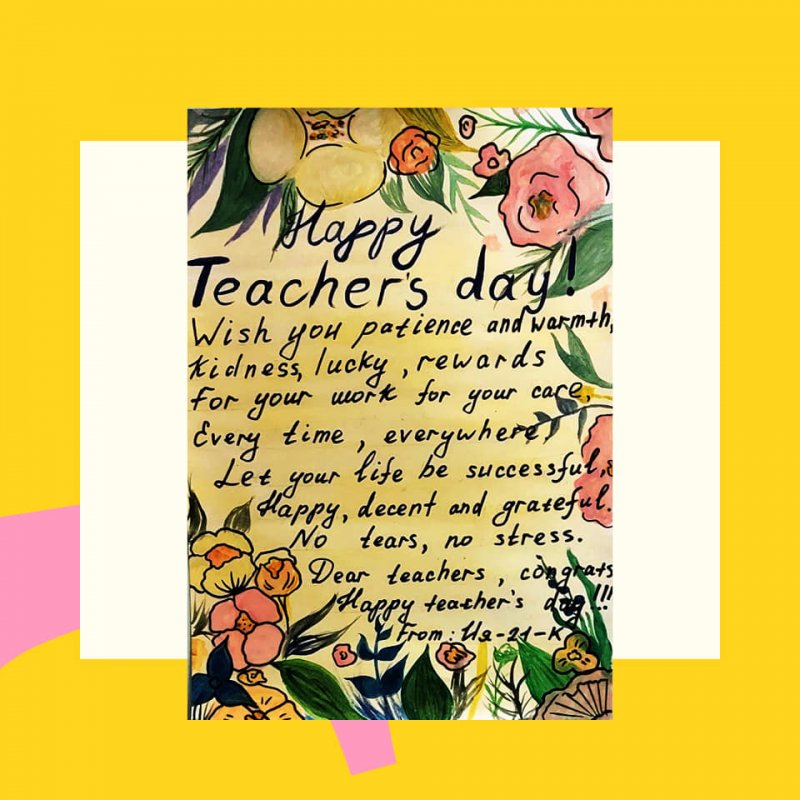 Happy
Teacher's day!
Wish you patience and warmth,
Kidness, lucky, rewards
For your work for your care,
Every time, everywhere,
Let your life be successful,
Happy, decent and grateful.
No tears, no stress.
Dear teachers, congrats
Happy teacher's day!!!
From: Ця-21-К